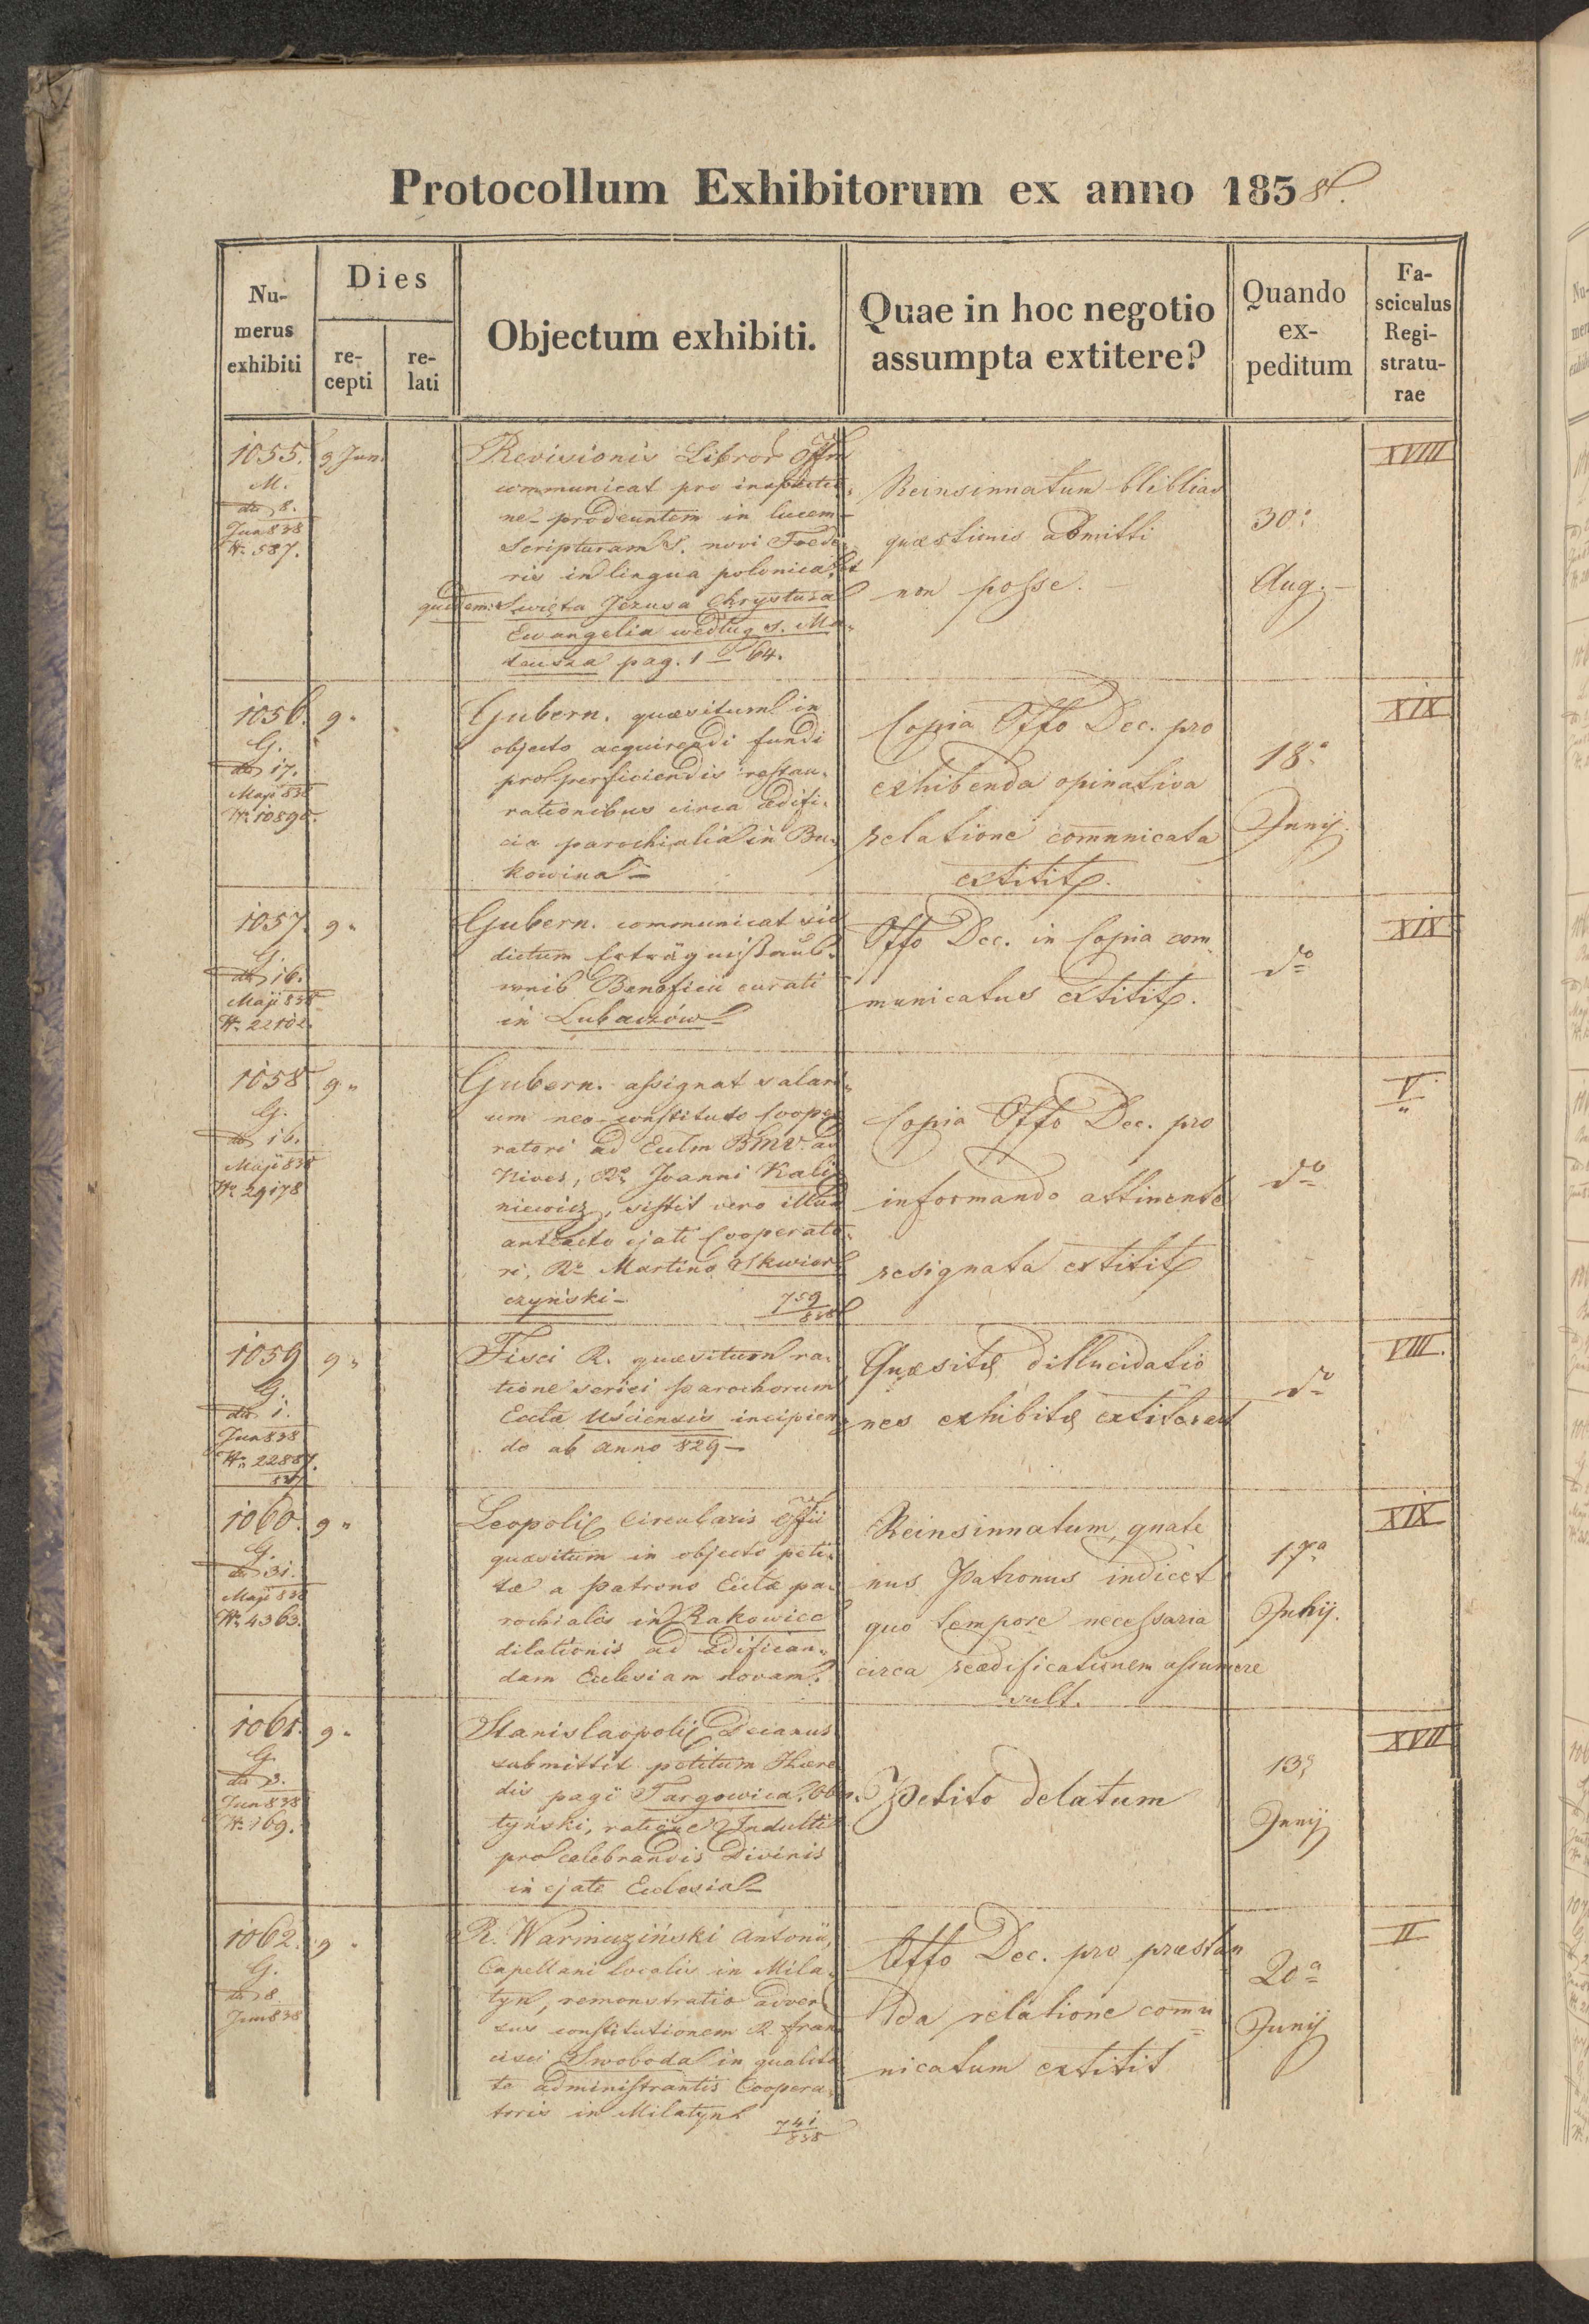 Protocollum Exhibitorum ex anno 1838.
Numerus exhibiti
Dies
recepti
relati
Objectum exhibiti.
Quae in hoc negotio
assumpta extitere?
Quando
ex-
peditum
Fa-
sciculus
Regi-
stratu-
rae
1055.
9 Jun.
M.
dto 8.
Jun 838
Nr. 587.
Revisionis Libror Offm
communicat pro inspectio-
ne prodeuntem in lucem
Scripturam S. novi Foede-
ris in lingua polonica, et
quidem: Swięta Jezusa Chrystusa
Ewangelia według S. Ma-
teusza pag. 1 64.
Reinsinnatum bliblias
quæstionis admitti
non posse.
30a
Aug.
XVIII
1056.
9 "
G.
dto 17.
Maji 838
Nr. 10890.
Gubern. quæsitum in
objecto acquirendi fundi
pro perficiendis restau-
rationibus circa ædifi-
cia parochialia in Bu-
kowina
Copia Offo Dec. pro
exhibenda opinativa
relatione comunicata
extitit.
18a
Junij
XIX
1057.
9 "
G.
dto 16.
Maji 838
Nr. 22102.
Gubern. communicat sic
dictum Erträgnißaus-
weis Beneficii curati
in Lubaczów
Offo Dec. in Copia com-
municatus extitit.
do
XIX
1058
9 "
G.
dto 16.
Maji 838
Nr. 29178
Gubern. assignat salari-
um neo-constituto Coope-
ratori ad Eccl'm BMV. ad
Nives, Rdo Joanni Kali-
niewicz, sistit vero illud
anteacto ejati Cooperato-
ri, Rdo Martino Skwior-
czyński
759
838
Copia Offo Dec. pro
informando attinente
resignata extitit
do
V
1059
9 "
G.
dto 1.
Jun 838
Nr. 22887.
837
Fisci R. quæsitum ra-
tione seriei parochorum
Eccl'æ Uściensis incipien-
do ab anno 829
Quæsitæ dillucidatio-
nes exhibitæ extiterunt
do
VIII.
1060.
9 "
G.
dto 31.
Maji 838
Nr. 4363.
Leopoliens Circularis Offii
quæsitum in objecto peti-
tæ a Patrono Eccl'æ pa-
rochialis in Rakowiec
dilationis ad ædifican-
dam Ecclesiam novam.
Reinsinnatum, quate
nus Patronus indicet
quo tempore necessaria
circa reædificationem assumere
vult.
17a
Julij.
XIX
1061.
9 "
G.
dto 3.
Jun 838
Nr. 169.
Stanislaopoliens Decanus
submittit petitum Hære-
dis pagi Targowica, Ober-
tyński, ratione Indulti
pro celebrandis Divinis
in ejate Ecclesia
Petito delatum
13a
Junij
XVII
1062.
9 "
G.
dto 8.
Jun 838
R. Antonii,
Capellani localis in Mila-
tyn, remonstratio adver-
sus constitutionem R. Fran-
cisci Swoboda in qualita-
te administrantis Coopera-
toris in Milatyn
741
838
Offo Dec. pro præstan
da relatione comu
nicatum extitit
20a
Junij
II